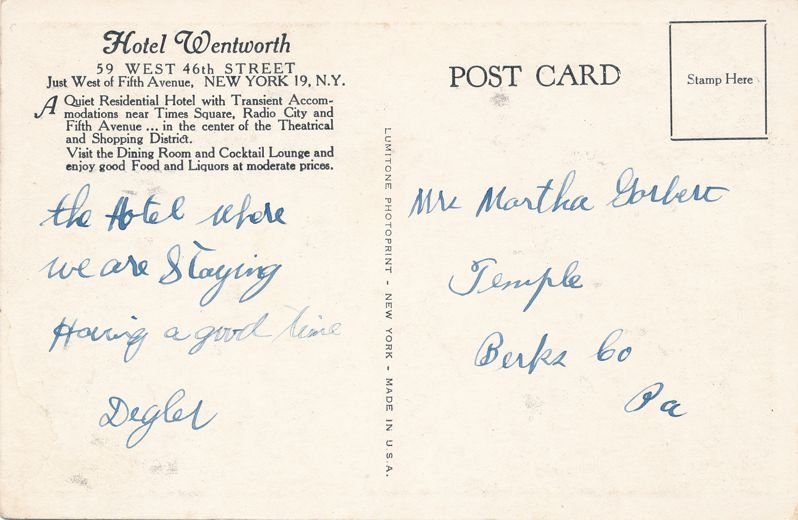 Hotel Wentworth
59 WEST 46th STREET
Just West of Fifth Avenue, NEW YORK 19, N.Y.
A Quiet Residential Hotel with Transient Accom-
modations near Times Square, Radio City and
Fifth Avenue ... in the center of the Theatrical
and Shopping District.
Visit the Dining Room and Cocktail Lounge and
enjoy good Food and Liquors at moderate prices.
the Hotel where
we are Staying
Having a good time
Degler
LUMITONE PHOTOPRINT - NEW YORK - MADE IN U.S.A.
POST CARD
Stamp Here
Mrs Martha Gorbert
Temple
Berks Co
Pa